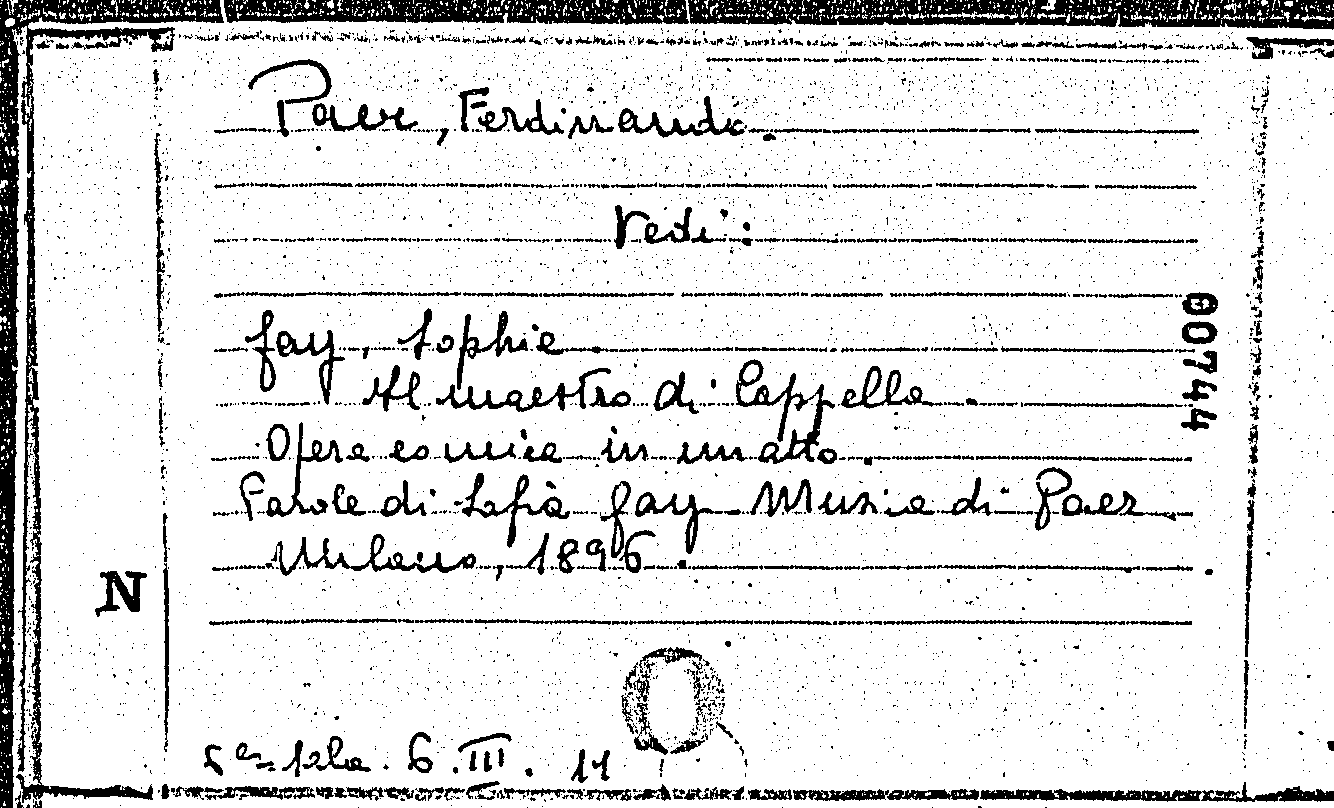 Paer, Ferdinando.
Vedi:
Gay, Sophie.
Il maestro di Cappella.
Opera comica in un atto.
Parole di Sofia Gay. Musica di Paer.
Milano, 1896.
00744
N
6.III.11